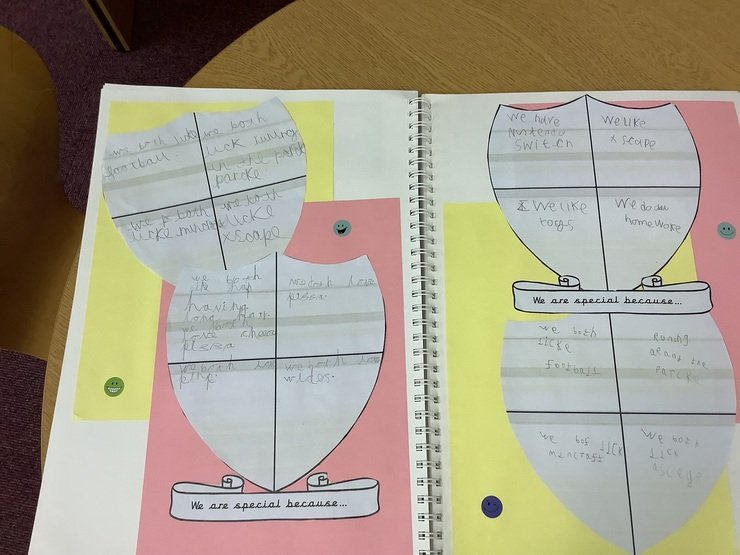 we both like
football.
we both
lick runing
in the parck
parcke.
we both
licke
we both
licke
xscape
we both
having
long hair.
we both
love cheese
pissa
we both love
pissa.
we both love
we both love
We are special because...
we have
nintendo
switch
we like
xscape
We like
togs
We do our
homewake
We are special because...
we both
licke
football
Runing
arant the
parcke
we bof lick
mincraft
we both
lick